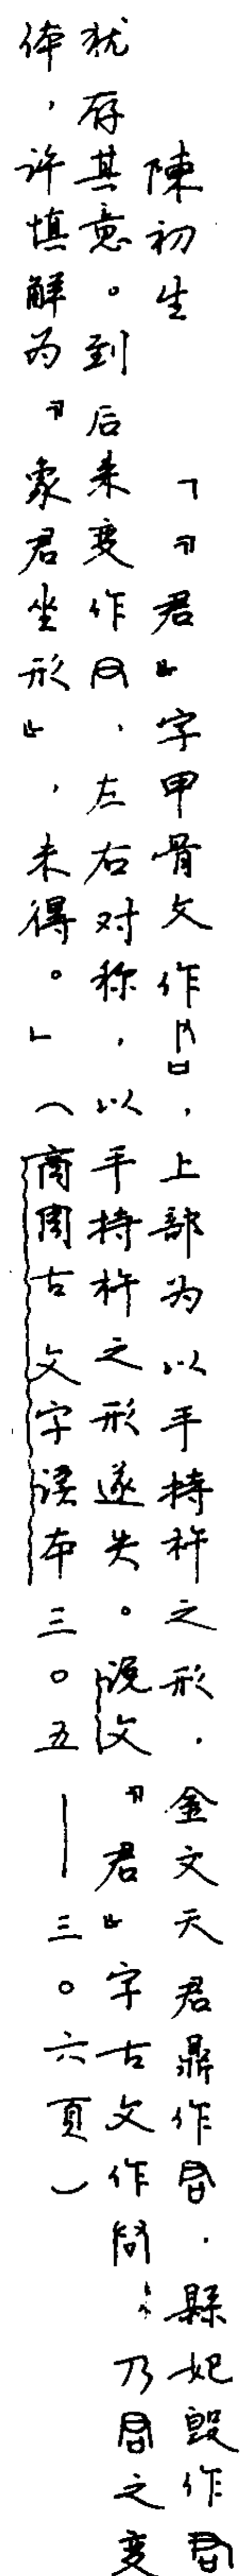 陳初生　「『君』字甲骨文作，上部为以手持杵之形．金文天君鼎作．縣妃𣪘作
犹存其意。到后来变作，左右对称，以手持杵之形遂失。说文『君』字古文作，乃之变
体，许慎解为『象君坐形』，未得。」（商周古文字读本三〇五——三〇六頁）